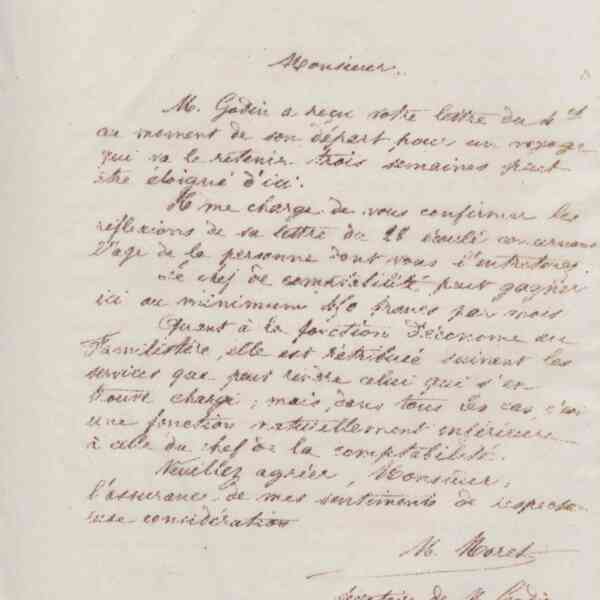 Monsieur,
M. Godin a reçu votre lettre du 4 ct
au moment de son départ pour un voyage
qui va le retenir trois semaines peut
être éloigné d'ici.
Il me charge de vous confirmer les
réflexions de sa lettre du 28 écoulé concernant
l'age de la personne dont vous l'entretenez.
Le chef de comptabilité peut gagner
ici au minimum francs par mois
Quant à la fonction d'économe au
Familistère, elle est rétribuée suivant les
services que peut rendre celui qui s'en
trouve chargé ; mais, dans tous les cas, c'est
une fonction naturellement inférieure
à celle du chef de la comptabilité.
Veuillez agréer, Monsieur,
l'assurance de mes sentiments de respectu-
euse considération
M. Moret
Secrétaire de M. Godin